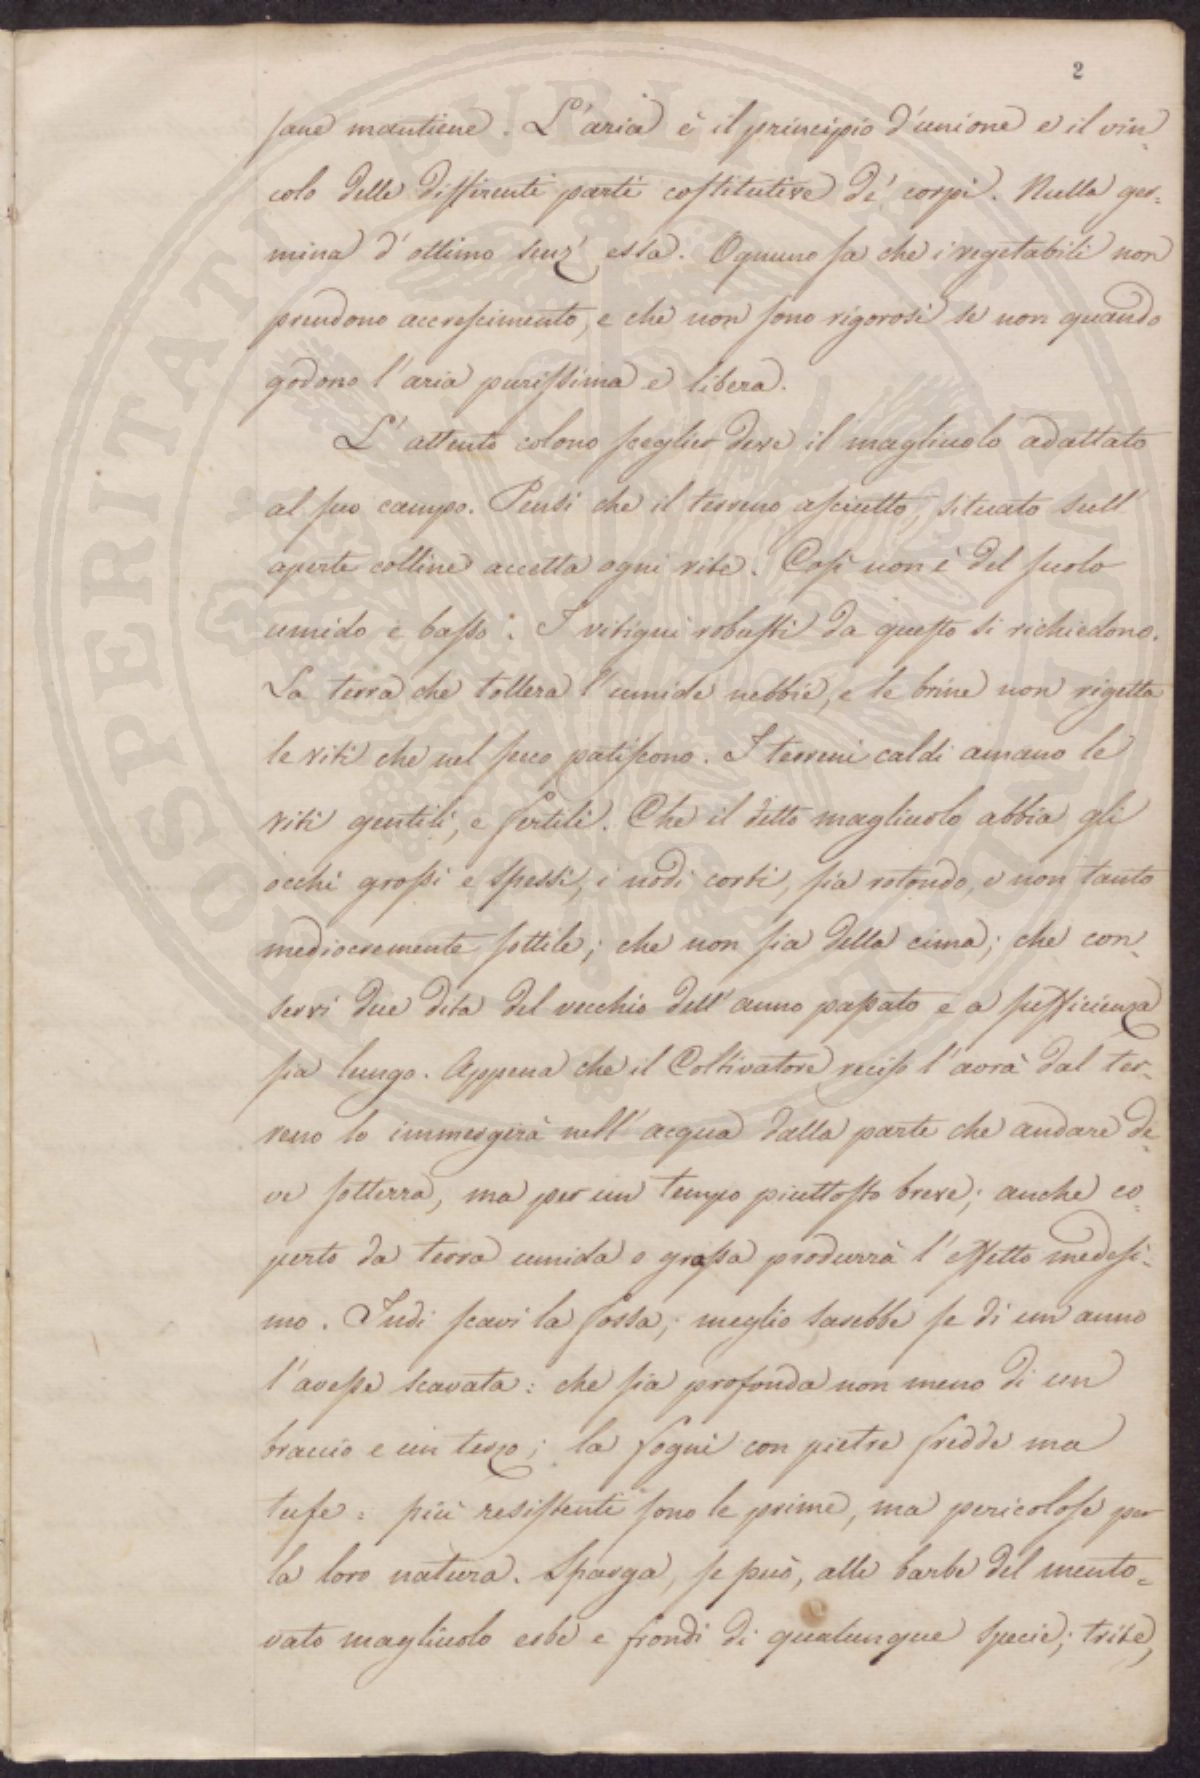 2
sane mantiene. L'aria è il principio d'unione e il vin-
colo delle differenti parti costitutive de' corpi. Nulla ger-
mina d'ottimo senz' essa. Ognuno sa che i vegetabili non
prendono accrescimento, e che non sono rigorosi se non quando
godono l'aria purissima e libera.
L'attento colono sceglier deve il magliuolo adattato
al suo campo. Pensi che il terreno asciutto, situato sull'
aperte colline accetta ogni vite. Così non è del suolo
umido e basso. I vitigni robusti da questo si richiedono.
La terra che tollera l'umide nebbie, e le brine non rigetta
le viti che nel secco patiscono. I terreni caldi amano le
viti gentili, e fertili. Che il detto magliuolo abbia gli
occhi grossi e spessi, i nodi corti, sia rotondo, e non tanto
mediocremente sottile; che non sia della cima; che con-
servi due dita del vecchio dell'anno passato e a sufficienza
sia lungo. Appena che il Coltivatore reciso l'avrà dal ter-
reno lo immergerà nell'acqua dalla parte che andare de-
ve sotterra, ma per un tempo piuttosto breve; anche co-
perto da terra umida o grassa produrrà l'effetto medesi-
mo. Indi scavi la fossa; meglio sarebbe se di un anno
l'avesse scavata: che sia profonda non meno di un
braccio e un terzo; la fogni con pietre fredde ma
tufe: più resistenti sono le prime, ma pericolose per
la loro natura. Sparga, se può, alle barbe del mento-
vato magliuolo erbe e frondi di qualunque specie; trite,
PROSPERITATI PUBLICAE AUGENDAE